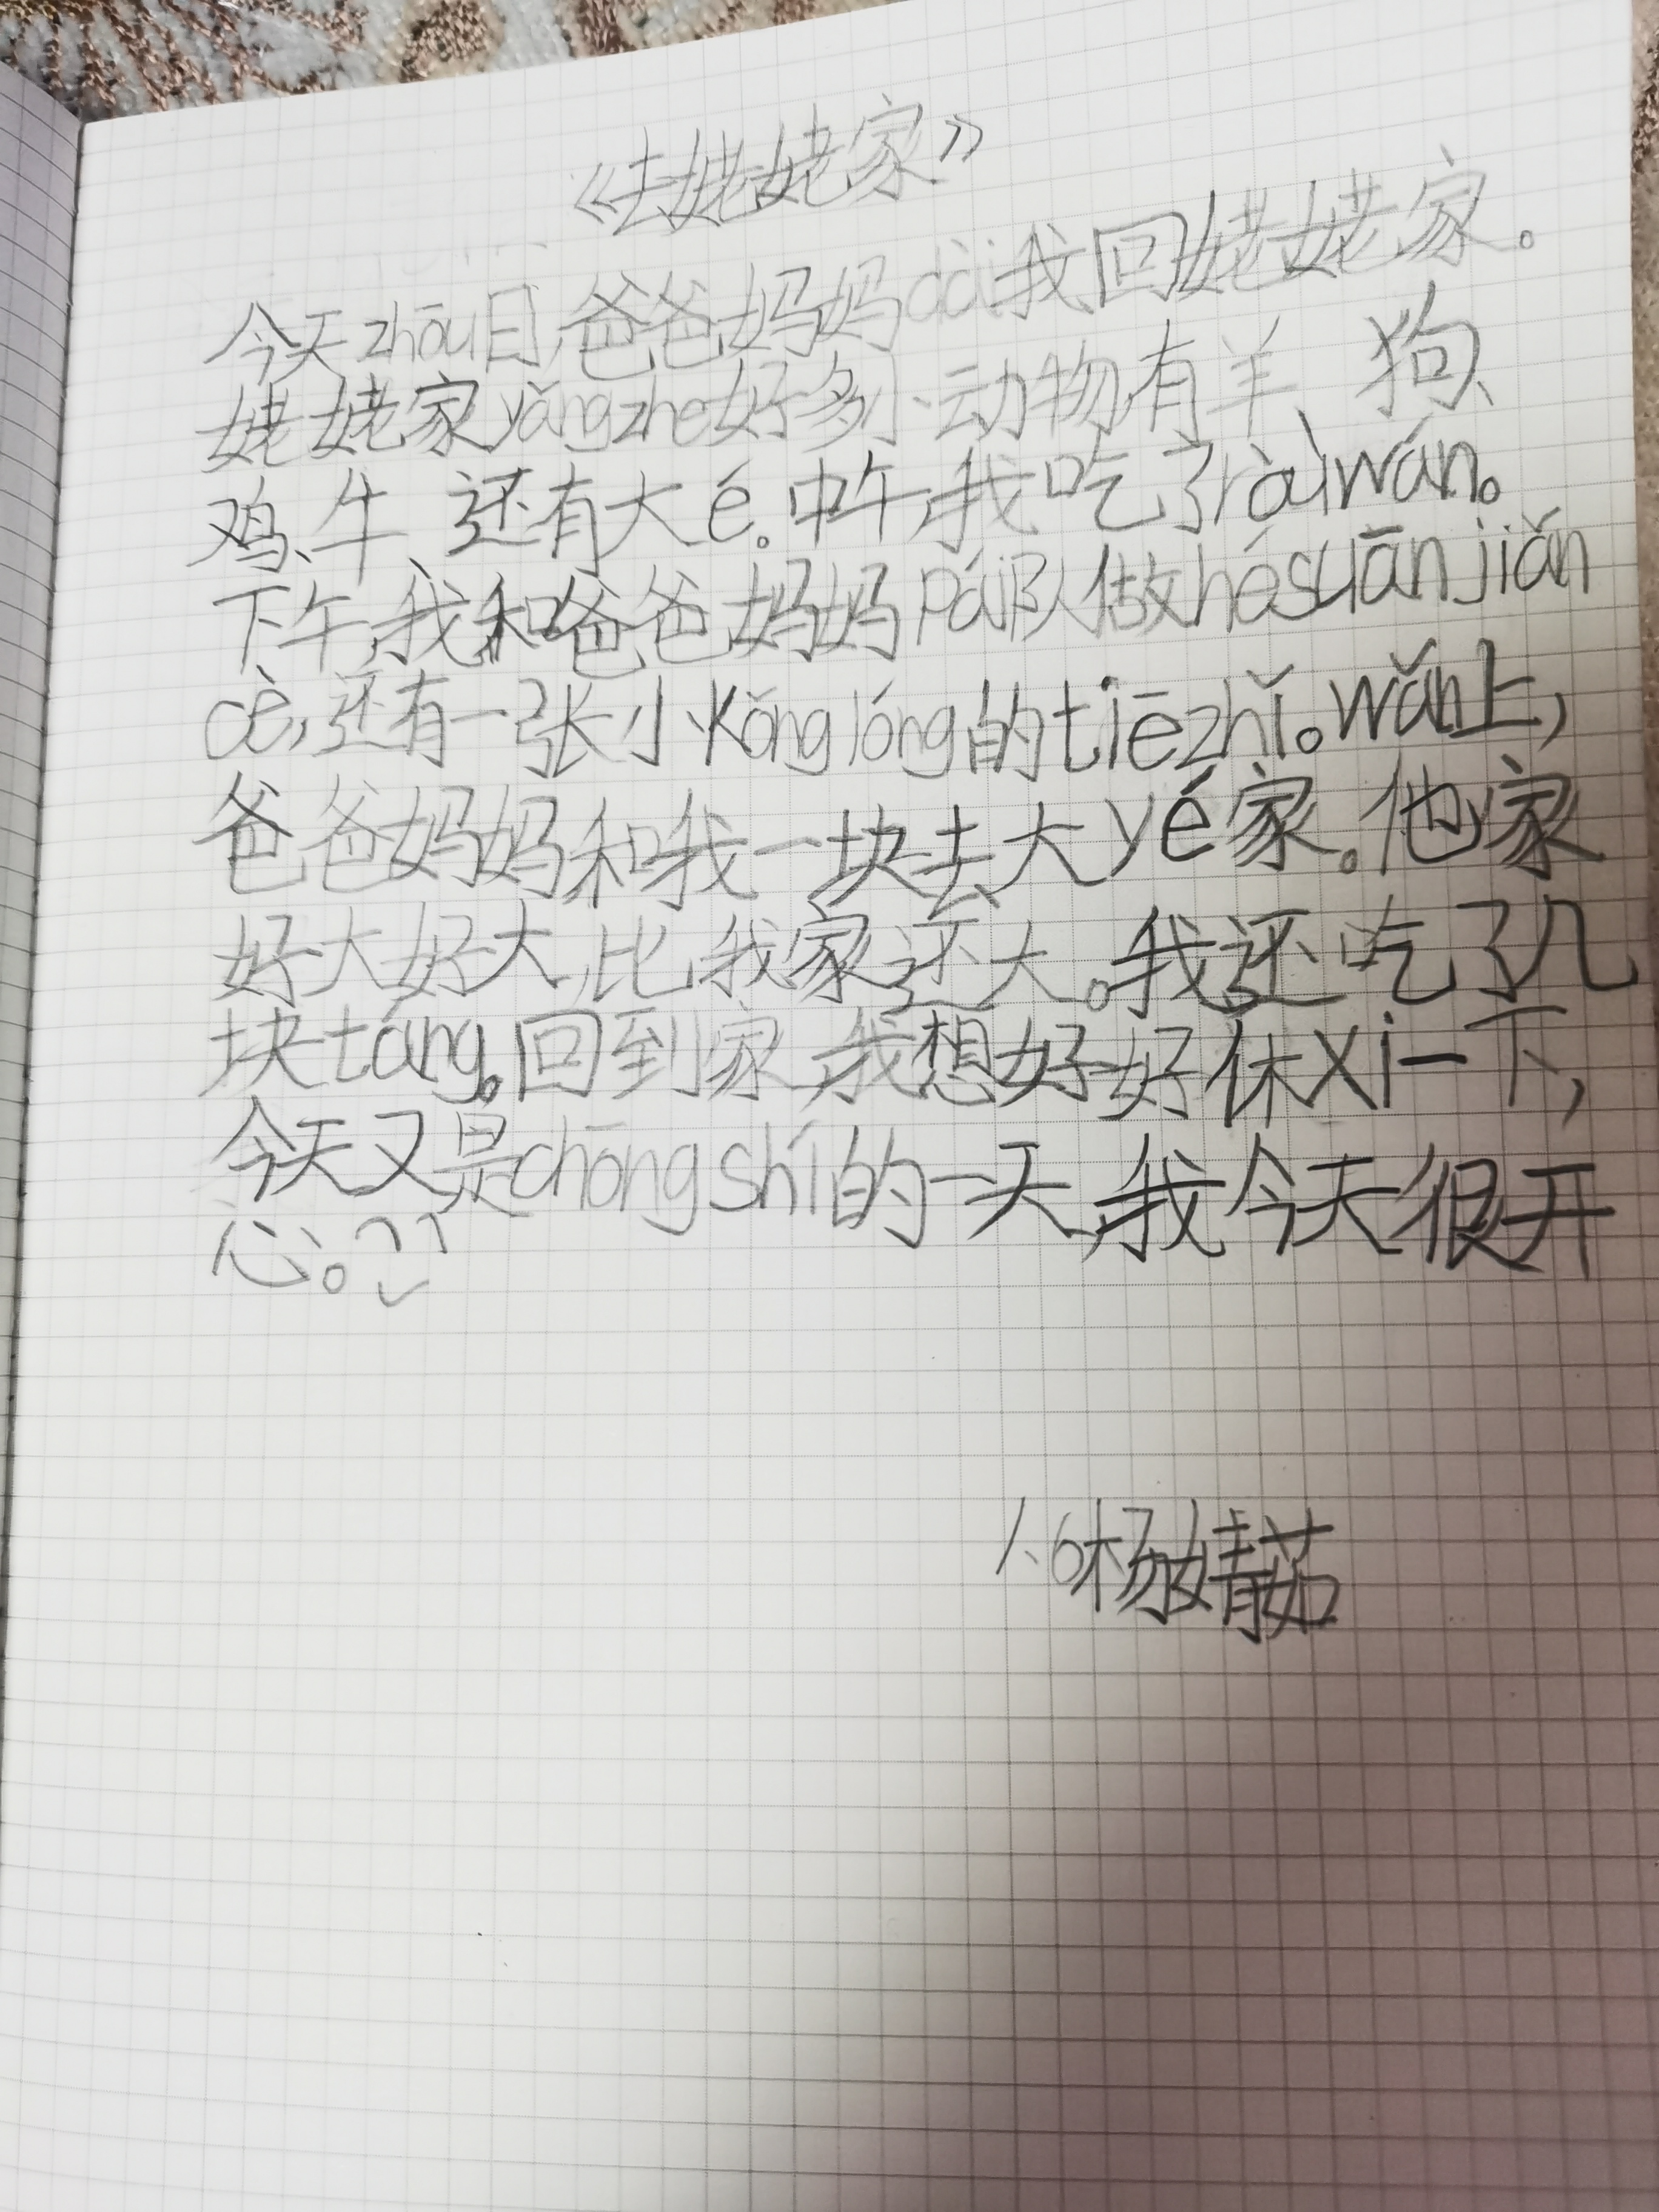 《去姥姥家》
今天zhōu日,爸爸妈妈dài我回姥姥家。
姥姥家yǎngzhe好多小动物有羊、狗、
鸡、牛、还有大é。中午,我吃了ròuwán。
下午,我和爸爸妈妈pái队做hésuānjiǎn
cè,还有一张小kǒnglóng的tiēzhǐ。wǎn上,
爸爸妈妈和我一块去大yé家。他家
好大好大,比我家还大。我还吃了几
块táng。回到家,我想好好休xi一下,
今天又是chōngshí的一天,我今天很开
心。
1.6杨婧茹